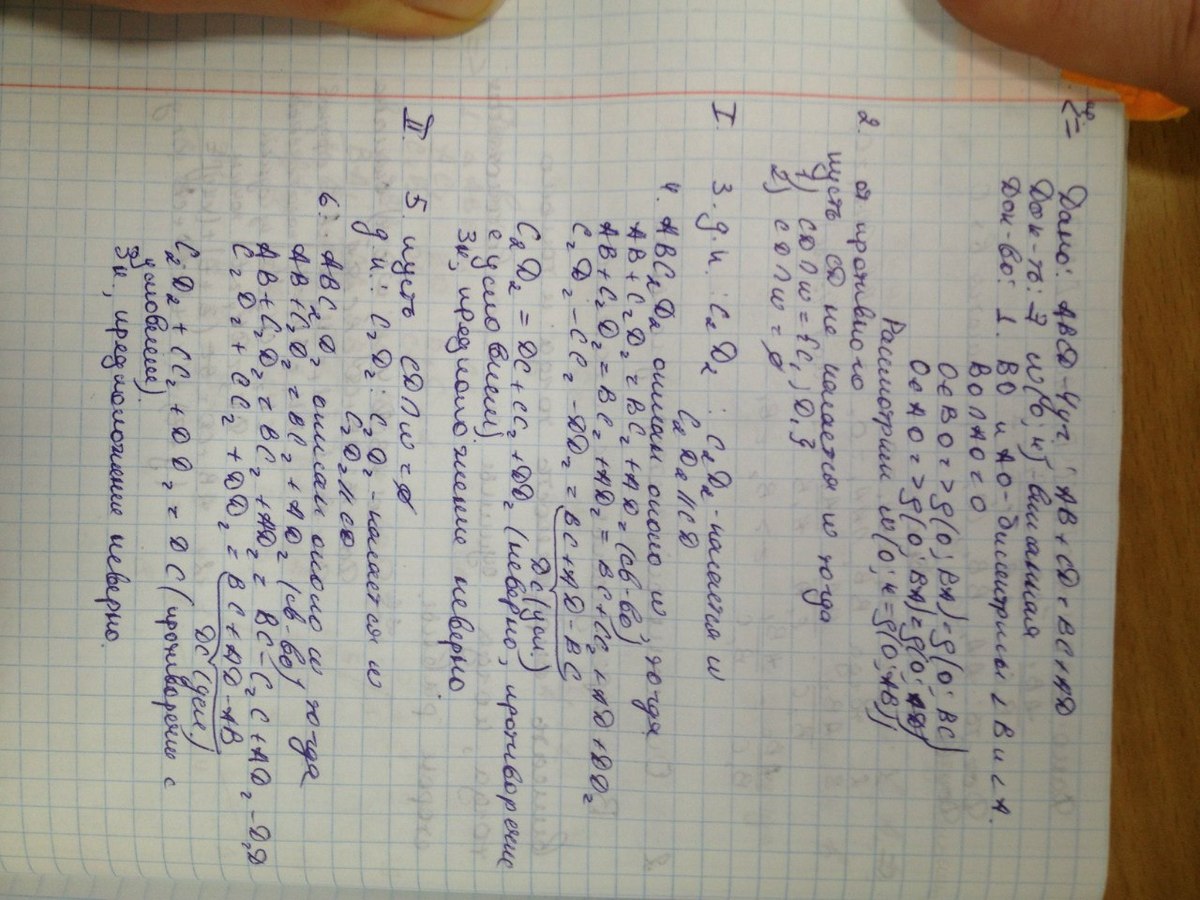 Дано: ABCD - 4уг; AB + CD = BC + AD
Док-ть: ∃ w(O; r) - вписанная
Док-во: 1. BO и AO - биссектрисы ∠B и ∠A.
BO ∩ AO = O
O ∈ BO => ρ(O; BA) = ρ(O; BC)
O ∈ AO => ρ(O; BA) = ρ(O; AD)
Рассмотрим w(O; r = ρ(O; AB))
2. от противного
пусть CD не касается w тогда
1) CD ∩ w = {C1, D1}
2) CD ∩ w = ∅
I. 3. д.п.: C2D2 : C2D2 - касается w
C2D2 || CD
4. ABC2D2 описан около w, тогда
AB + C2D2 = BC2 + AD2 (св-во)
AB + C2D2 = BC + CC2 + AD + DD2
C2D2 - CC2 - DD2 = BC + AD - BC
DC (усл.)
C2D2 = DC + CC2 + DD2 (неверно, противоречие
с условием)
Зн., предположение неверно
II. 5. пусть CD ∩ w = ∅
д.п.: C2D2 : C2D2 - касается w
C2D2 || CD
6. ABC2D2 описан около w тогда
AB + C2D2 = BC2 + AD2 (св-во)
AB + C2D2 = BC2 + AD2 = BC - C2C + AD2 - D2D
C2D2 + CC2 + DD2 = BC + AD - AB
DC (усл)
C2D2 + CC2 + DD2 = DC (противоречие с
условием).
Зн., предположение неверно.